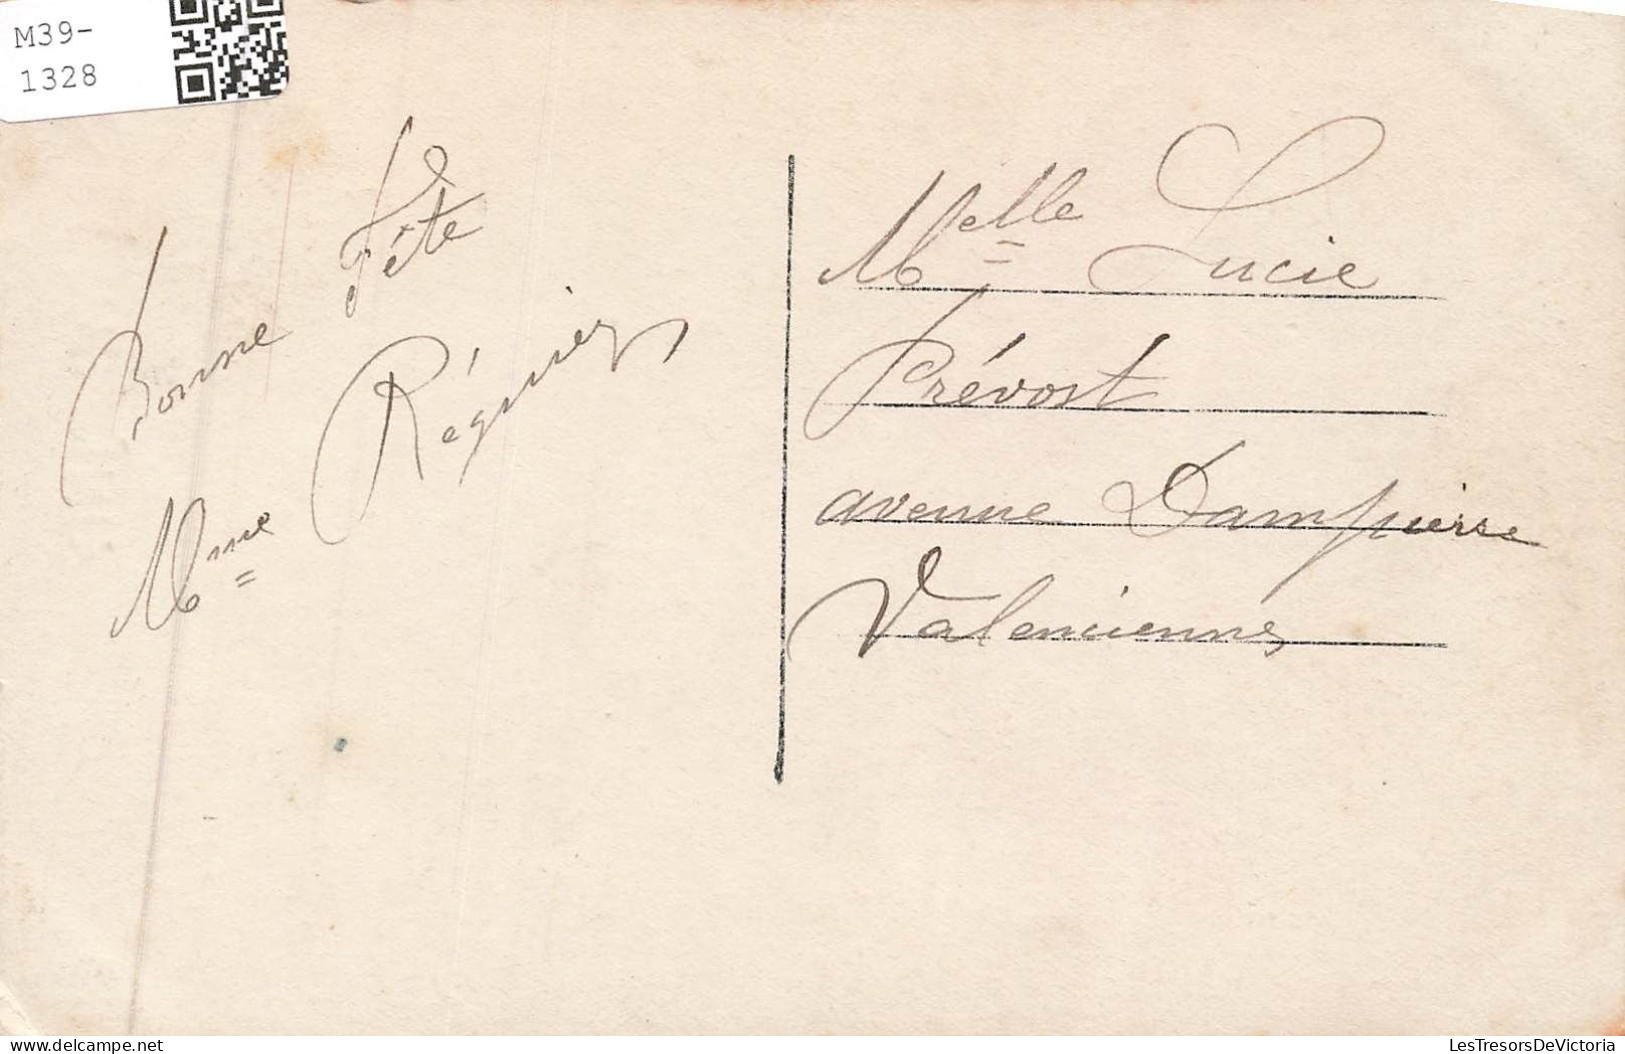 M39-
1328
Bonne Fête
Mme Régnier
Melle Lucie
Prévost
avenue Dampierre
Valenciennes
delcampe.net
LesTresorsDeVictoria